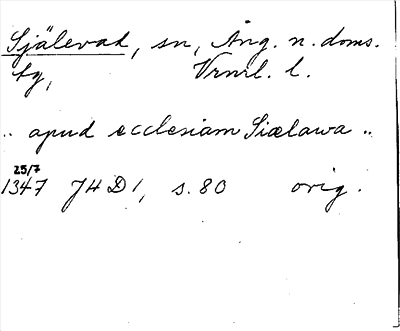 Själevad, sn, Ång. n. doms.
tg, Vrnrl. l.
.. apud ecclesiam Siælawa ..
25/7
1347 JHD 1, s. 80 orig.